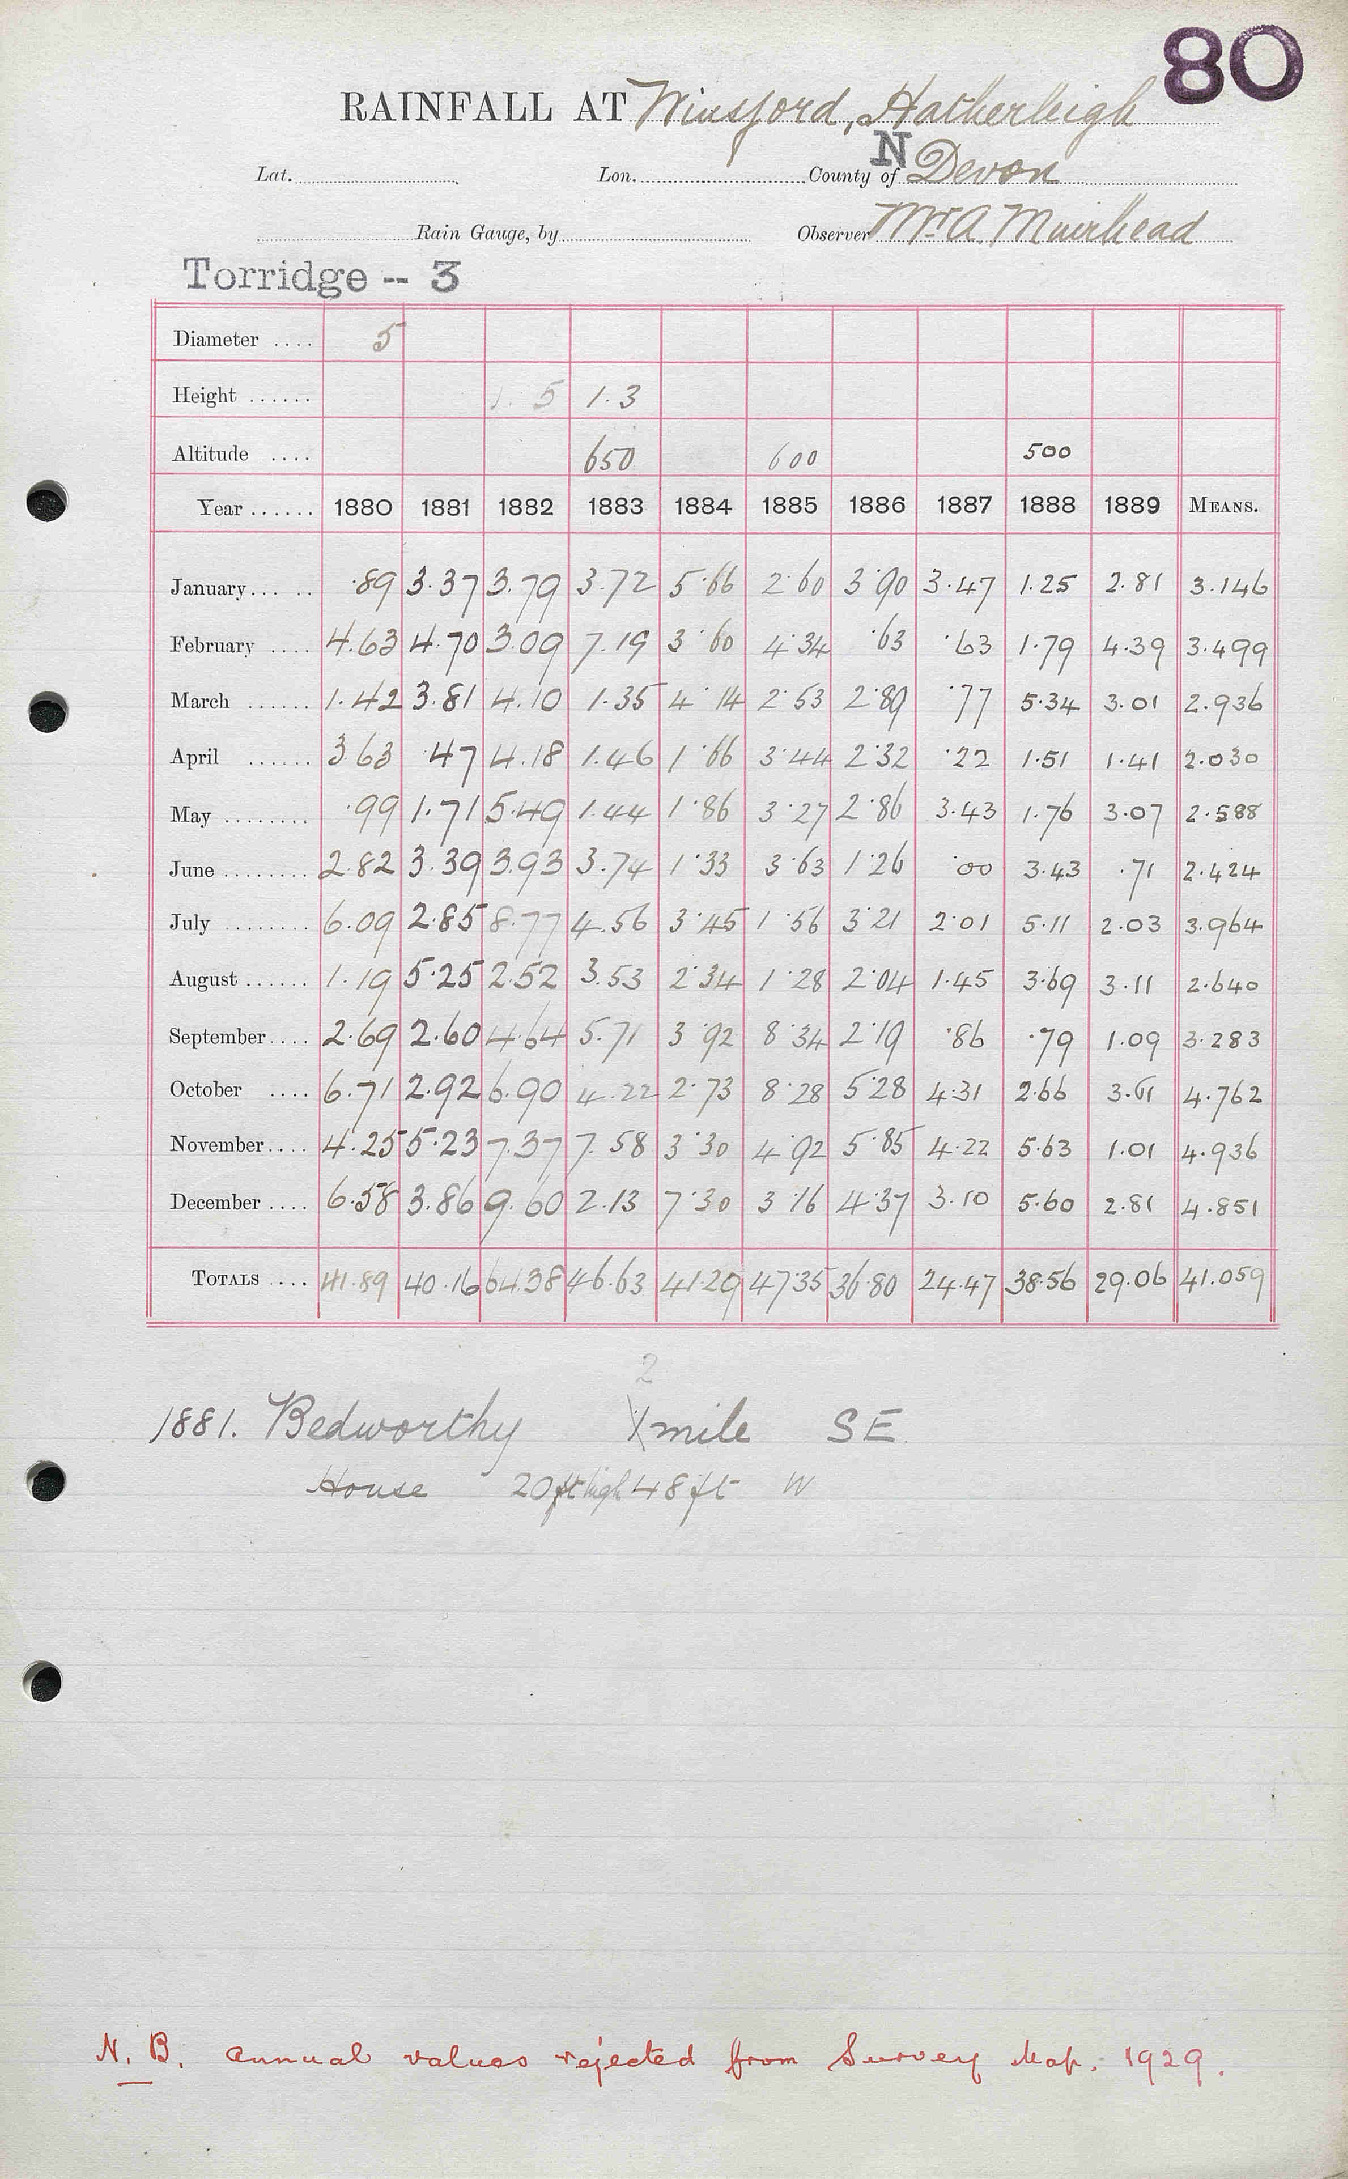 80
RAINFALL AT Winsford, Hatherleigh
Lat. Lon. County of N Devon
Rain Gauge, by Observer Mr A. Muirhead
Torridge -- 3
Diameter .... 5
Height ...... 1. 5 1.3
Altitude .... 650 600 500
Year ...... 1880 1881 1882 1883 1884 1885 1886 1887 1888 1889 MEANS.
January ... .. .89 3.37 3.79 3.72 5.66 2.60 3.90 3.47 1.25 2.81 3.146
February .... 4.63 4.70 3.09 7.19 3.60 4.34 .63 .63 1.79 4.39 3.499
March ...... 1.42 3.81 4.10 1.35 4.14 2.53 2.89 .77 5.34 3.01 2.936
April ...... 3 63 .47 4.18 1.46 1.66 3.44 2.32 .22 1.51 1.41 2.030
May ........ .99 1.71 5.49 1.44 1.86 3.27 2.86 3.43 1.76 3.07 2.588
June ........ 2.82 3.39 3.93 3.74 1.33 3.63 1.26 .00 3.43 .71 2.424
July ........ 6.09 2.85 8.77 4.56 3.45 1.56 3.21 2.01 5.11 2.03 3.964
August ...... 1.19 5.25 2.52 3.53 2.34 1.28 2.04 1.45 3.69 3.11 2.640
September .... 2.69 2.60 4.64 5.71 3.92 8.34 2.19 .86 .79 1.09 3.283
October .... 6.71 2.92 6.90 4.22 2.73 8.28 5.28 4.31 2.66 3.61 4.762
November .... 4.25 5.23 7.37 7.58 3.30 4.92 5.85 4.22 5.63 1.01 4.936
December .... 6.58 3.86 9.60 2.13 7.30 3.16 4.37 3.10 5.60 2.81 4.851
TOTALS .... 41.89 40.16 64.38 46.63 41.29 47.35 36.80 24.47 38.56 29.06 41.059
2
1881. Bedworthy 1 mile SE
House 20 ft high 48 ft W
N. B. Annual values rejected from Survey Map, 1929.